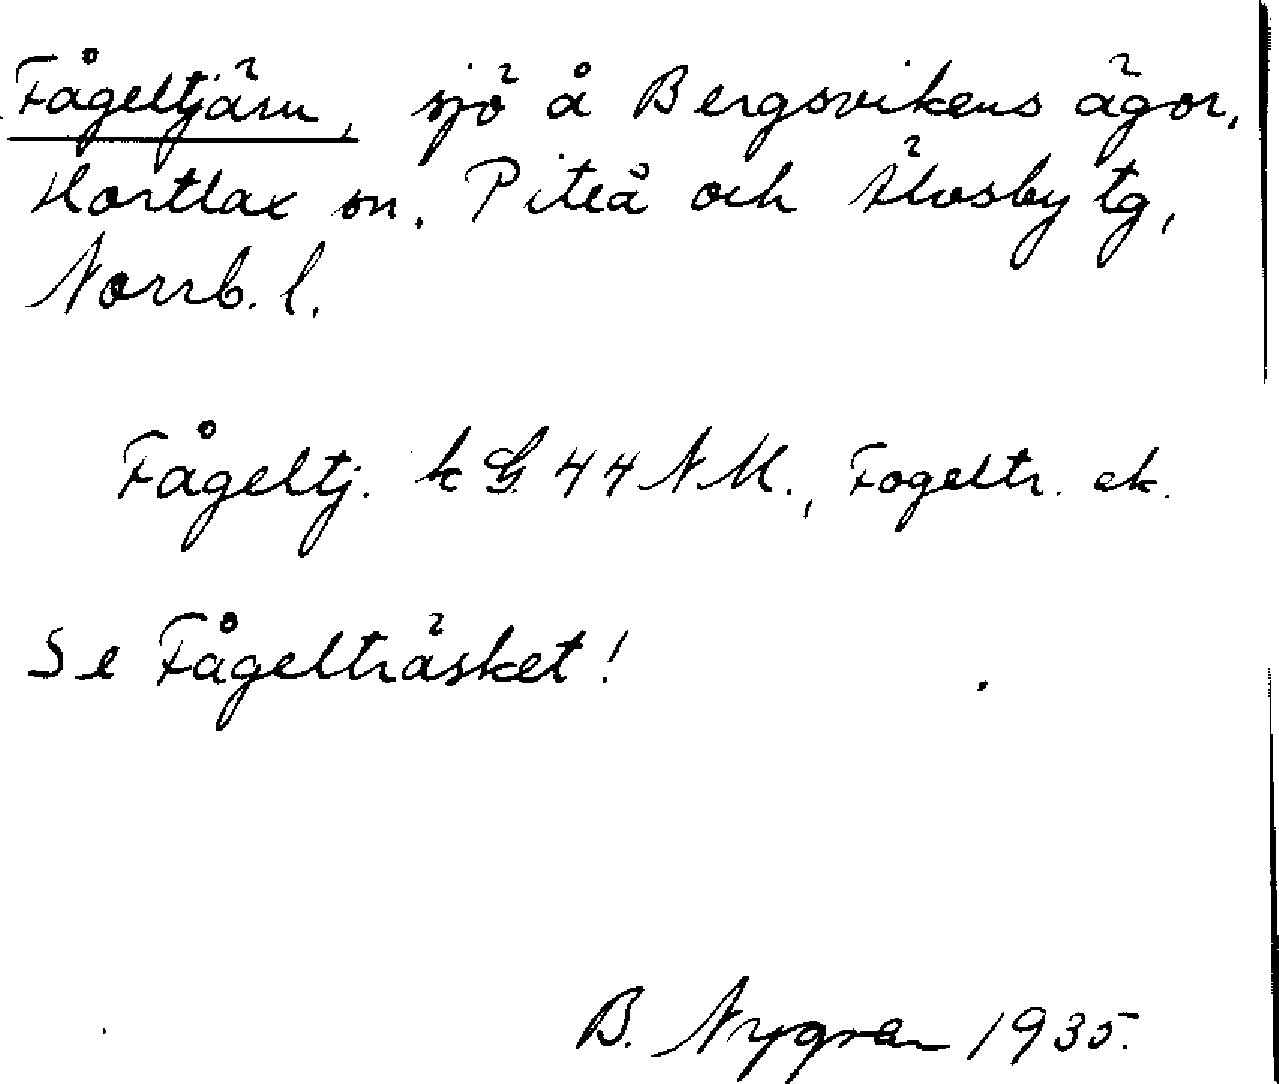 Fågeltjärn, sjö å Bergsvikens ägor,
Hortlax sn. Piteå och Älvsby tg,
Norrb. l.
Fågeltj. k G. 44 NM., Fogeltr. ek.
Se Fågelträsket!
B. Nygren 1935.